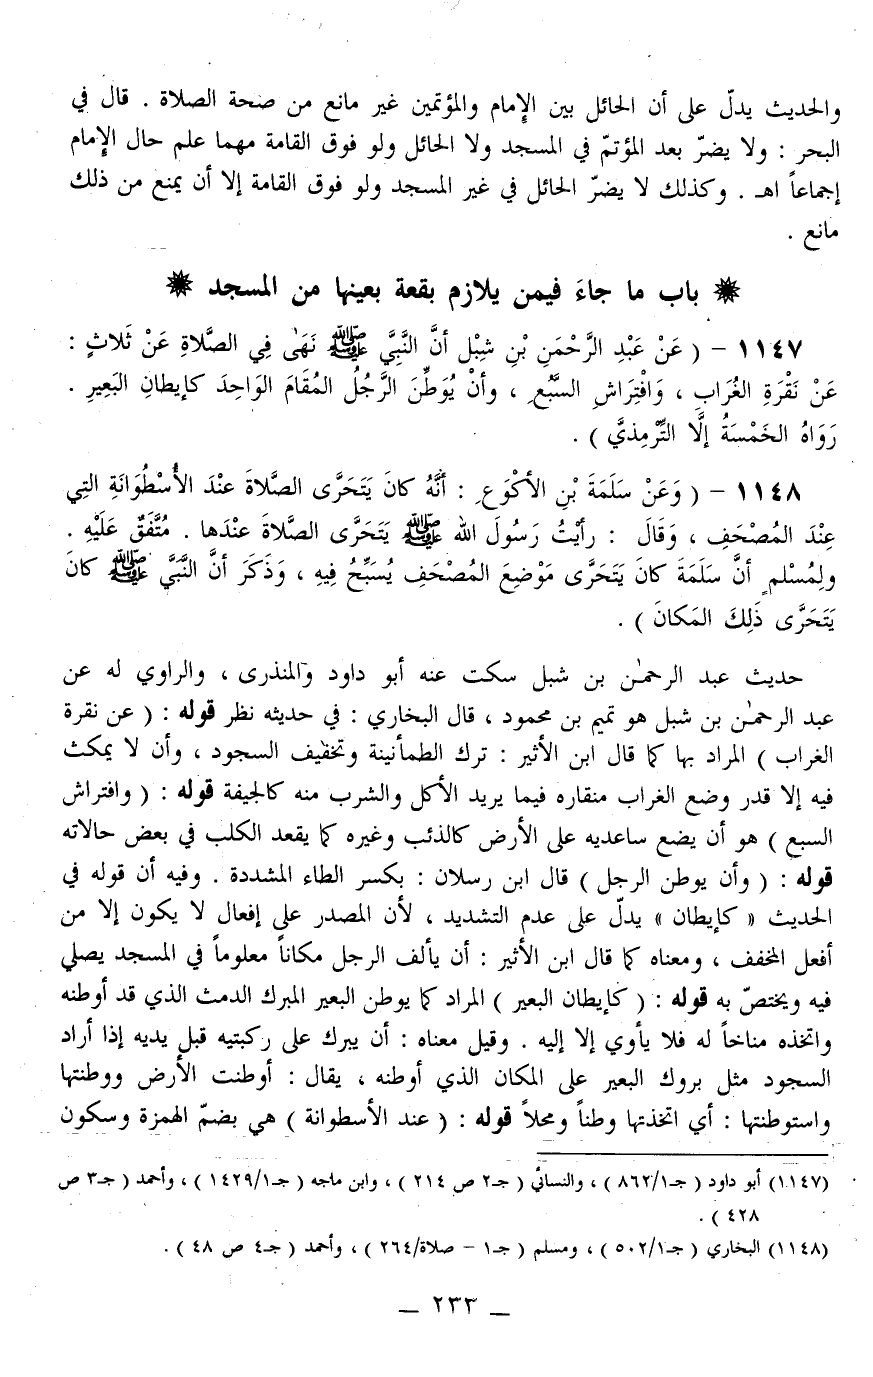 والحديث يدلّ على أن الحائل بين الإِمام والمؤتمين غير مانع من صحة الصلاة . قال في
البحر : ولا يضرّ بعد المؤتمّ في المسجد ولا الحائل ولو فوق القامة مهما علم حال الإِمام
إجماعاً اهـ . وكذلك لا يضرّ الحائل في غير المسجد ولو فوق القامة إلا أن يمنع من ذلك
مانع .
❋ باب ما جاءَ فيمن يلازم بقعة بعينها من المسجد ❋
١١٤٧ – ( عَنْ عَبْدِ الرَّحْمَنِ بْنِ شِبْلٍ أنَّ النَّبِيَّ ﷺ نَهَىٰ فِي الصَّلاةِ عَنْ ثَلاثٍ :
عَنْ نَقْرَةِ الغُرَابِ ، وَافْتِرَاشِ السَّبُعِ ، وَأنْ يُوَطِّنَ الرَّجُلُ المُقَامَ الوَاحِدَ كإيطانِ البَعِيرِ .
رَوَاهُ الخَمْسَةُ إلَّا التِّرْمِذيَّ ) .
١١٤٨ – ( وَعَنْ سَلَمَةَ بْنِ الأكْوَعِ : أنَّهُ كانَ يَتَحَرَّى الصَّلاةَ عنْدَ الأسْطُوَانَةِ التِي
عِنْدَ المُصْحَفِ ، وَقَالَ : رأيْتُ رَسُولَ الله ﷺ يَتَحَرَّى الصَّلاةَ عنْدَها . مُتَّفَقٌ عَلَيْهِ .
ولِمُسْلمٍ أنَّ سَلَمَةَ كانَ يَتَحَرَّى مَوْضِعَ المُصْحَفِ يُسَبِّحُ فِيهِ ، وَذَكَرَ أنَّ النَّبَيَّ ﷺ كانَ
يَتَحَرَّى ذَلِكَ المَكانَ ) .
حديث عبد الرحمٰن بن شبل سكت عنه أبو داود والمنذرى ، والراوي له عن
عبد الرحمٰن بن شبل هو تميم بن محمود ، قال البخاري : في حديثه نظر قوله : ( عن نقرة
الغراب ) المراد بها كما قال ابن الأثير : ترك الطمأنينة وتخفيف السجود ، وأن لا يمكث
فيه إلا قدر وضع الغراب منقاره فيما يريد الأكل والشرب منه كالجيفة قوله : ( وافتراش
السبع ) هو أن يضع ساعديه على الأرض كالذئب وغيره كما يقعد الكلب في بعض حالاته
قوله : ( وأن يوطن الرجل ) قال ابن رسلان : بكسر الطاء المشددة . وفيه أن قوله في
الحديث « كإيطان » يدلّ على عدم التشديد ، لأن المصدر على إفعال لا يكون إلا من
أفعل المخفف ، ومعناه كما قال ابن الأثير : أن يألف الرجل مكاناً معلوماً في المسجد يصلي
فيه ويختصّ به قوله : ( كإيطان البعير ) المراد كما يوطن البعير المبرك الدمث الذي قد أوطنه
واتخذه مناخاً له فلا يأوي إلا إليه . وقيل معناه : أن يبرك على ركبتيه قبل يديه إذا أراد
السجود مثل بروك البعير على المكان الذي أوطنه ، يقال : أوطنت الأرض ووطنتها
واستوطنتها : أي اتخذتها وطناً ومحلاً قوله : ( عند الأسطوانة ) هي بضمّ الهمزة وسكون
(١١٤٧) أبو داود ( جـ٨٦٢/١ ) ، والنسائي ( جـ٢ ص ٢١٤ ) ، وابن ماجه ( جـ١٤٢٩/١ ) ، وأحمد ( جـ٣ ص
٤٢٨ ) .
(١١٤٨) البخاري ( جـ٥٠٢/١ ) ، ومسلم ( جـ١ – صلاة/٢٦٤ ) ، وأحمد ( جـ٤ ص ٤٨ ) .
– ٢٣٣ –